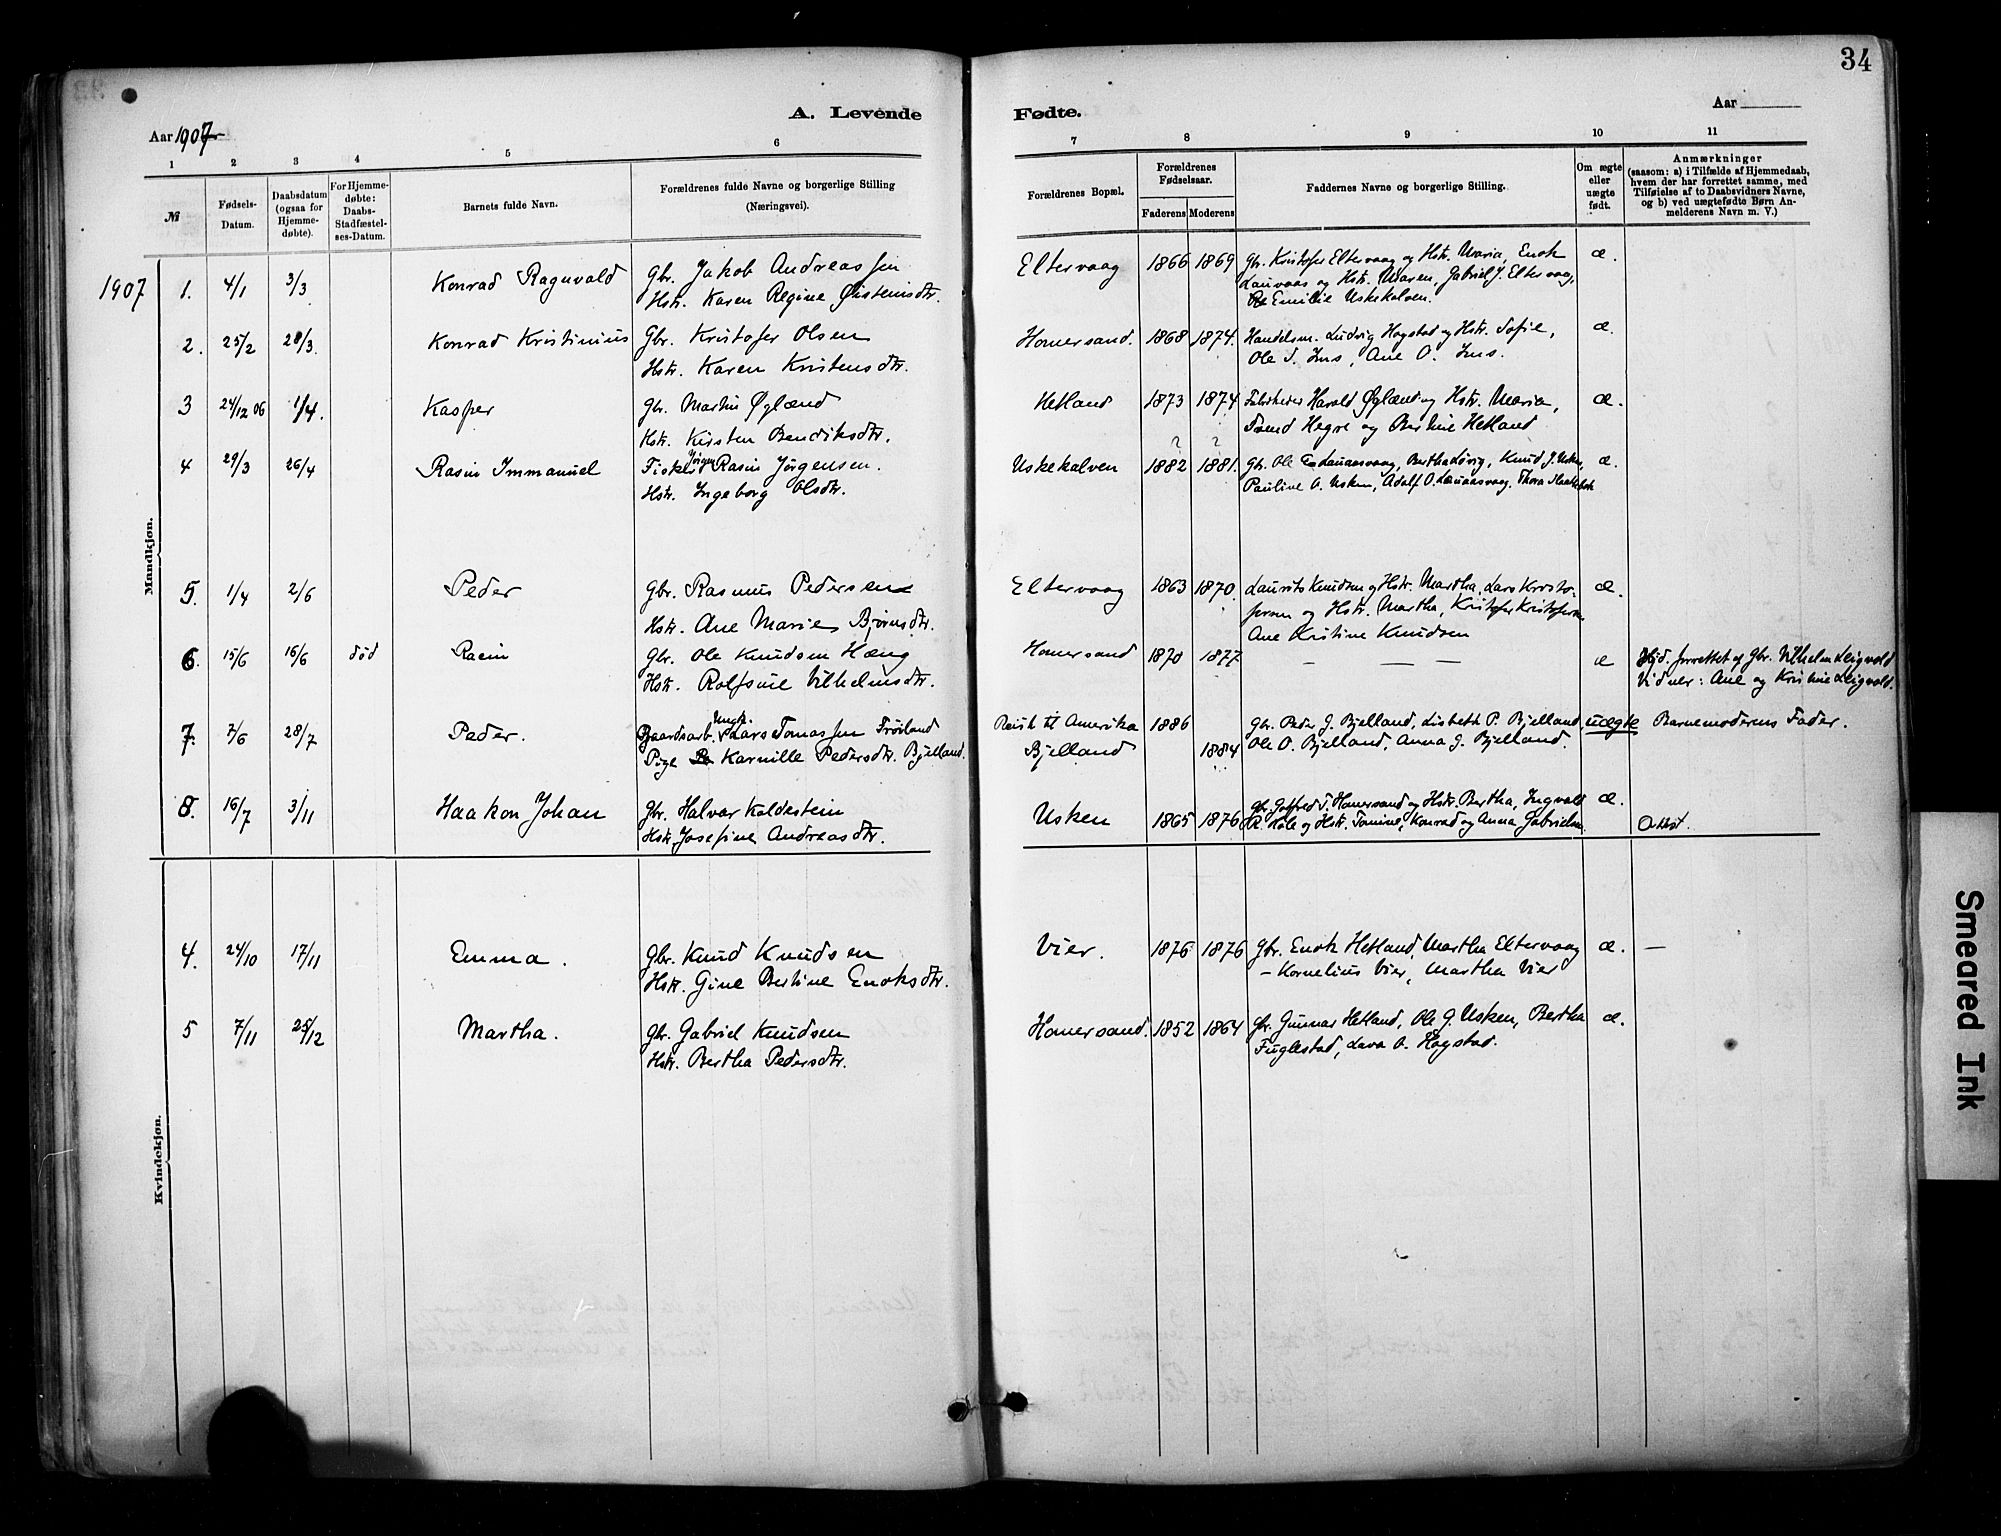 34
A. Levende Fødte.
Aar 1907
Aar
1 2 3 4 5 6 7 8 9 10 11
№
Fødsels-Datum.
Daabsdatum (ogsaa for Hjemme-døbte).
For Hjemme-døbte: Daabs-Stadfæstel-ses-Datum.
Barnets fulde Navn.
Forældrenes fulde Navne og borgerlige Stilling (Næringsvei).
Forældrenes Bopæl.
Forældrenes Fødselsaar.
Faderens Moderens
Faddernes Navne og borgerlige Stilling.
Om ægte eller uægte født.
Anmærkninger
(saasom: a) i Tilfælde af Hjemmedaab,
hvem der har forrettet samme, med
Tilføielse af to Daabsvidners Navne,
og b) ved uægtefødte Børn An-
melderens Navn m. V.)
Mandkjøn.
1907 1. 4/1 3/3 Konrad Ragnvald Gbr. Jakob Andreassen Eltervaag 1866 1869 Gbr. Kristofer Eltervaag og Hstr. Maria, Enok æ.
Hstr. Karen Regine Østeinsdtr. Lauvaas og Hstr. Maren, Gabriel J. Eltervaag,
Emilie Uskekalven.
2. 25/2 28/3. Konrad Kristinius Gbr. Kristofer Olsen Homersand. 1868 1874. Handelsm. Ludvig Hogstad og Hstr. Sofie, æ.
Hstr. Karen Kristensdtr. Ole S. Ims, Ane O. Ims.
3 24/12 06 1/4. Kasper Gbr. Martin Øglænd Hetland 1873 1874 Harald Øglænd og Hstr. Maria, æ.
Hstr. Kirsten Bendiksdtr. Hegre og Bertine Hetland
? ?
4 29/3 26/4 Rasin Immanuel Fisker Jørgen Rasin Jørgensen. Uskekalven 1882 1881. Gbr. Ole Lauaasvaag, Bertha Løvig, Knud J. Usken, æ.
Hstr. Ingeborg Olsdtr. Pauline A. Usken, Adolf O. Lauaasvaag. Thora
5. 1/4 2/6 Peder Gbr. Rasmus Pedersen Eltervaag 1863 1870. Laurits Knudsen og Hstr. Martha, Lars Kristo- æ.
Hstr. Ane Marie Bjørnsdtr. fersen og Hstr. Martha, Kristofer Kristofersen
Ane Kristine Knudsen
6. 15/6 16/6 død Rasin Gbr. Ole Knudsen Hæng Homersand 1870 1877. — — — æ Hjd. forrettet af Gbr. Vilhelm Leigvold
Hstr. Rolfsine Vilhelmsdtr. Vidner: Ane og Kristine Leigvold.
7. 7/6 28/7 Peder. Gaardsarb. Ungk. Lars Tomassen Frøiland Reist til Amerika 1886 Gbr. Peder G. Bjelland, Lisbeth P. Bjelland uægte Barnemoderens Fader.
Pige Karnille Pedersdtr. Bjelland. Bjelland 1884 Ole O. Bjelland, Anna G. Bjelland.
8. 16/7 3/11 Haakon Johan Gbr. Halvar Koldestein Usken 1865 1876 Gbr. Gotfred T. Homersand og Hstr. Bertha, Ingvald æ.
Hstr. Josefine Andreasdtr. Kole og Hstr. Tomine, Konrad og Anna Gabrielsen. Attst.
Kvindekjøn.
4. 24/10 17/11 Emma. Gbr. Knud Knudsen Vier. 1876 1876 Gbr. Enok Hetland, Martha Eltervaag æ. —
Hstr. Gine Bertine Enoksdtr. – Kornelius Vier, Martha Vier
5 7/11 25/12 Martha. Gbr. Gabriel Knudsen Homersand. 1852 1864 Gbr. Gunnar Hetland, Ole G. Usken, Bertha æ.
Hstr. Bertha Pedersdtr. Fuglestad, Lava O. Hogstad.
Smeared Ink